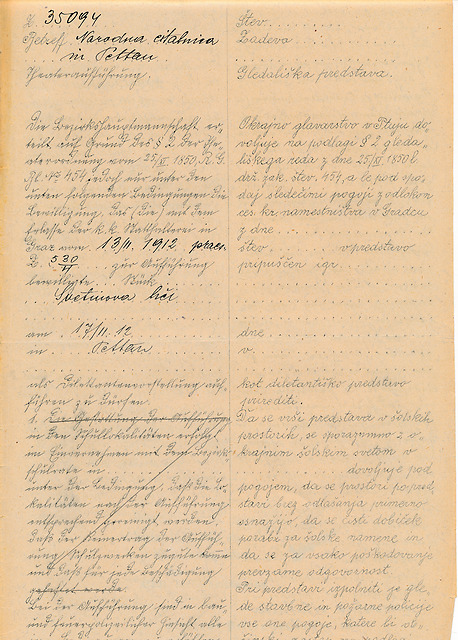 Z. 35094
Betreff Narodna čitalnica
in Pettau
Theateraufführung.
Die Bezirkshauptmannschaft er-
teilt auf Grund des § 2 der The-
aterordnung vom 25/XI 1850, R. G.
Bl. No 454, jedoch nur unter den
unten folgenden Bedingungen die
Bewilligung, das (die) mit dem
Erlasse der k.k. Statthalterei in
Graz vom 13/II. 1912, praes.
Z. 530 zur Aufführung
bewilligte Stück
Svetinova hči
am 17/II. 12
in Pettau
als Dilettantenvorstellung auf-
führen zu dürfen.
1. Die Gestattung der Aufführung
in den Schullokalitäten erfolgt
im Einvernehmen mit dem Bezirks-
schulrate in
unter der Bedingung, daß die Lo-
kalitäten nach der Aufführung
entsprechend gereinigt werden,
daß der Reinertrag der Auffüh-
rung Schulzwecken zugute komme
und daß für jede Beschädigung
gehaftet werde.
Bei der Aufführung sind in bau-
und feuerpolizeilicher Hinsicht alle
Štev.
Zadeva
Gledališka predstava.
Okrajno glavarstvo v Ptuju do-
voljuje na podlagi § 2 gleda-
liškega reda z dne 25/XI 1850 l.
drž. zak. štev. 454, a le pod spo-
daj sledečimi pogoji z odlokom
ces. kr. namestništva v Gradcu
z dne
štev. v predstavo
pripuščen igr
dne
v
kot diletantiško predstavo
prirediti.
Da se vrši predstava v šolskih
prostorih, se sporazumno z o-
krajnim šolskim svetom v
dovoljuje pod
pogojem, da se prostori po pred-
stavi brez odlašanja primerno
osnažijo, da se čisti dobiček
porabi za šolske namene in
da se za vsako poškodovanje
prevzame odgovornost.
Pri predstavi izpolniti je gle-
de stavbne in požarne policije
vse one pogoje, katere bi ob-